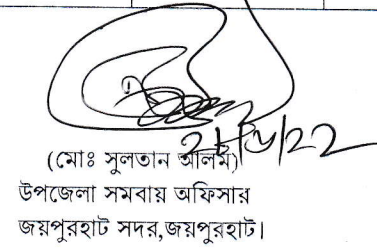 (মোঃ সুলতান আলম)
উপজেলা সমবায় অফিসার
জয়পুরহাট সদর,জয়পুরহাট।